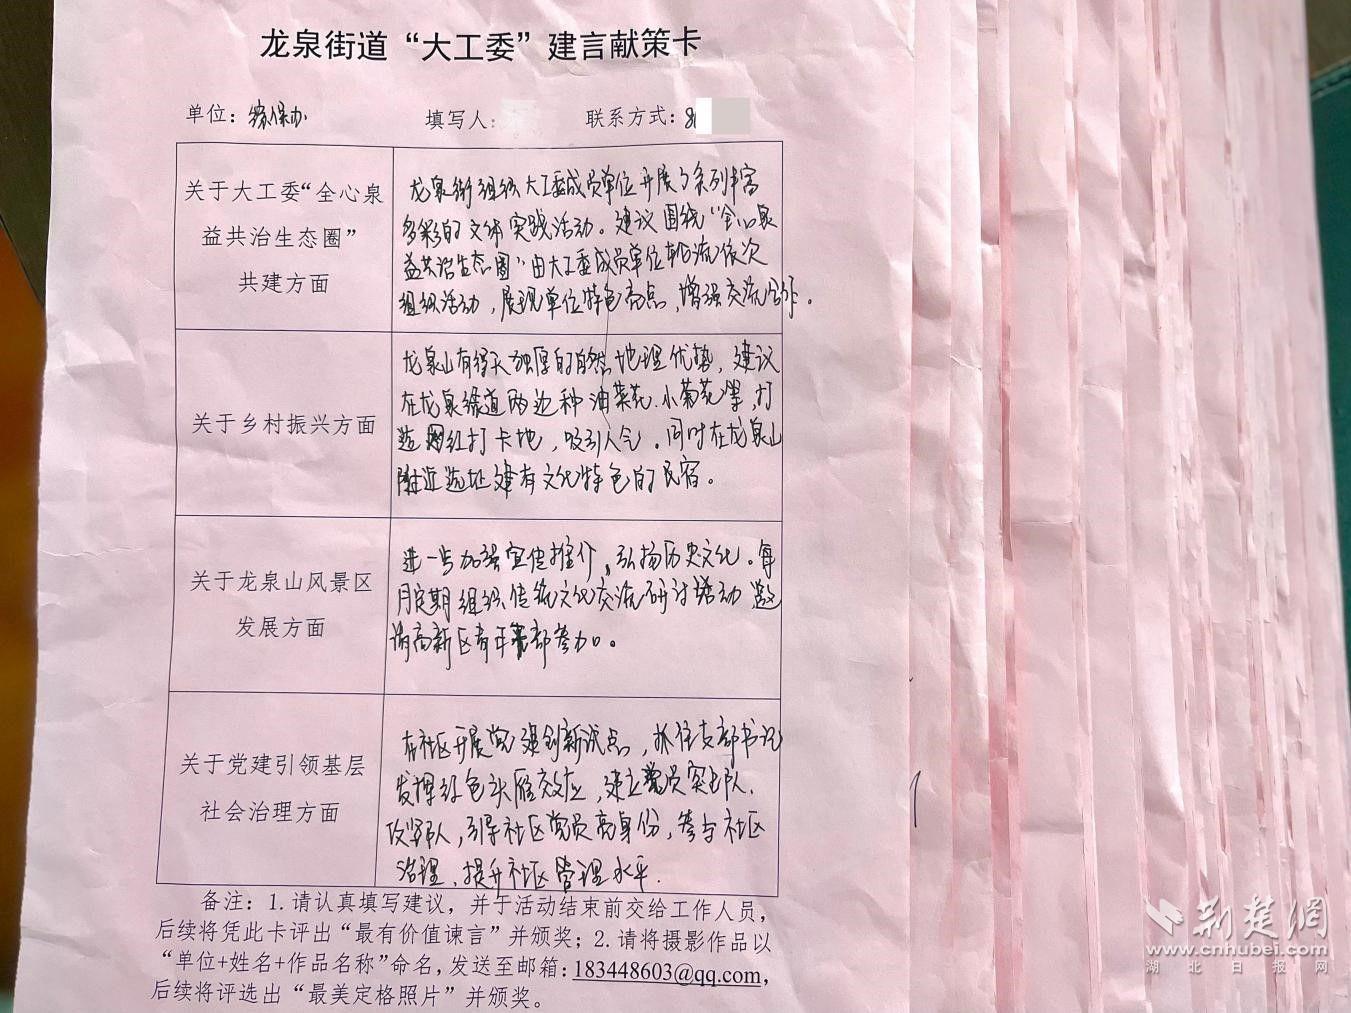 龙泉街道“大工委”建言献策卡
单位：综保办 填写人： 联系方式：8
关于大工委“全心泉
益共治生态圈”
共建方面
龙泉街组织大工委成员单位开展了系列丰富
多彩的文体实践活动。建议围绕“全心泉
益共治生态圈”由大工委成员单位轮流依次
组织活动，展现单位特色亮点，增强交流合作。
关于乡村振兴方面
龙泉山有得天独厚的自然地理优势，建议
在龙泉绿道两边种油菜花、小菊花等，打
造网红打卡地，吸引人气。同时在龙泉山
附近选址建有文化特色的民宿。
关于龙泉山风景区
发展方面
进一步加强宣传推介，弘扬历史文化。每
月定期组织传统文化交流研讨活动 邀
请高新区青年干部参加。
关于党建引领基层
社会治理方面
在社区开展党建创新试点，抓住支部书记
发挥红色头雁效应，建立党员突击队、
攻坚队，引导社区党员亮身份，参与社区
治理，提升社区管理水平.
备注：1.请认真填写建议，并于活动结束前交给工作人员，
后续将凭此卡评出“最有价值谏言”并颁奖；2.请将摄影作品以
“单位+姓名+作品名称”命名，发送至邮箱：183448603@qq.com，
后续将评选出“最美定格照片”并颁奖。
荆楚网
www.cnhubei.com
湖北日报网